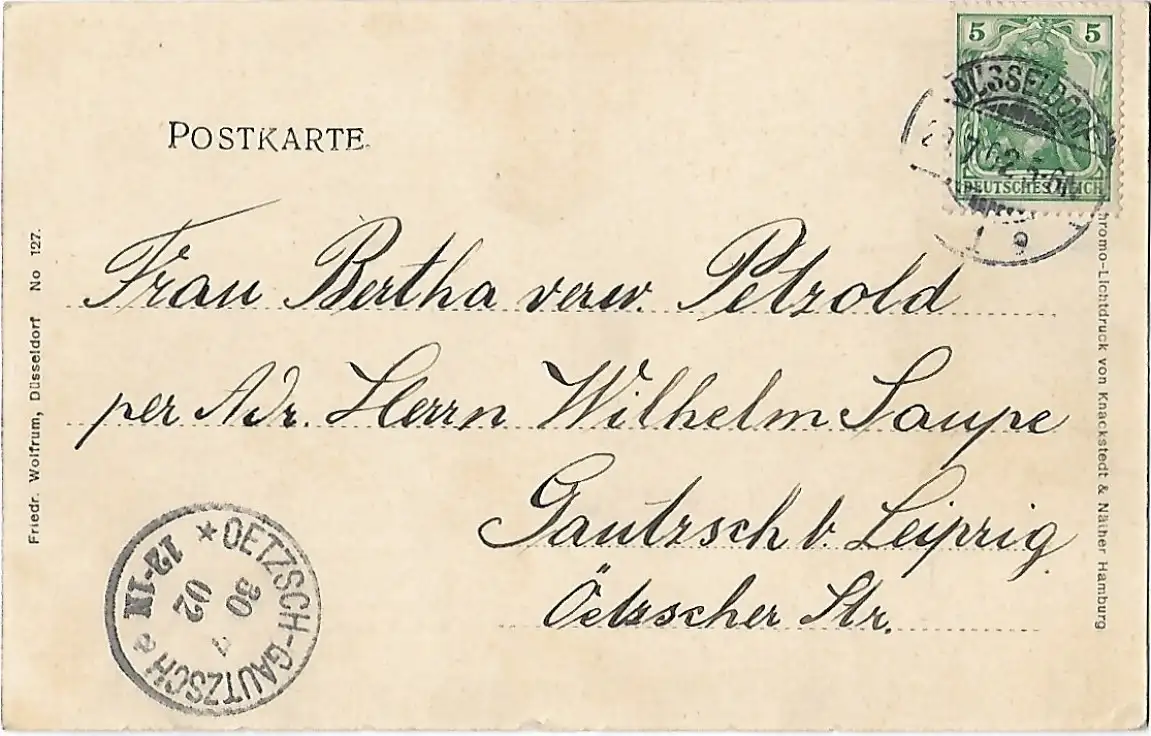 5 5
DÜSSELDORF
7.02.5-6N
DEUTSCHES REICH
1 g
POSTKARTE
Frau Bertha verw. Petzold
per Adr. Herrn Wilhelm Saupe
Gautzsch b. Leipzig.
Öetzscher Str.
Friedr. Wolfrum, Düsseldorf No 127.
Chromo-Lichtdruck von Knackstedt & Näther Hamburg
* OETZSCH-GAUTZSCH a
30 7
02
12-1N